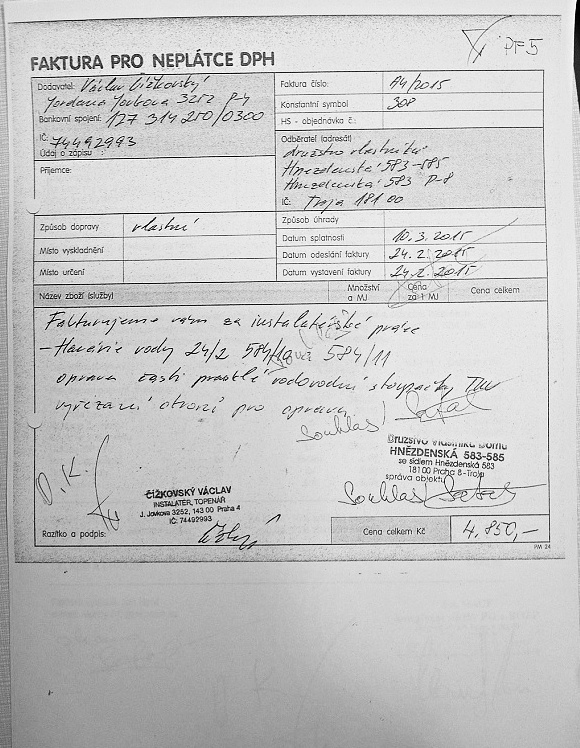 PF5
FAKTURA PRO NEPLÁTCE DPH
Dodavatel: Václav Čížkovský
Jordana Jovkova 3252 P-4
Bankovní spojení: 127 314 250/0300
IČ: 74492993
Údaj o zápisu :
Příjemce:
Faktura číslo: A4/2015
Konstantní symbol 308
HS - objednávka č.:
Odběratel (adresát)
družstvo vlastníků
Hnězdenská 583-585
Hnězdenská 583 P-8
IČ: Troja 181 00
Způsob dopravy vlastní
Místo vyskladnění
Místo určení
Způsob úhrady
Datum splatnosti 10.3.2015
Datum odeslání faktury 24.2.2015
Datum vystavení faktury 24.2.2015
Název zboží (služby)
Množství a MJ
Cena za 1 MJ
Cena celkem
Fakturujeme vám za instalatérské práce
- Havárie vody 24/2 584/ 584/11
oprava části prasklé vodovodní stoupačky
vyřezání otvorů pro opravu
Souhlas
O.K.
ČÍŽKOVSKÝ VÁCLAV
INSTALATÉR, TOPENÁŘ
J. Jovkova 3252, 143 00 Praha 4
IČ: 74492993
Družstvo vlastníků domu
HNĚZDENSKÁ 583-585
se sídlem Hnězdenská 583
181 00 Praha 8-Troja
správa objektu
Souhlas
Razítko a podpis:
Cena celkem Kč 4.850,-
PM 24